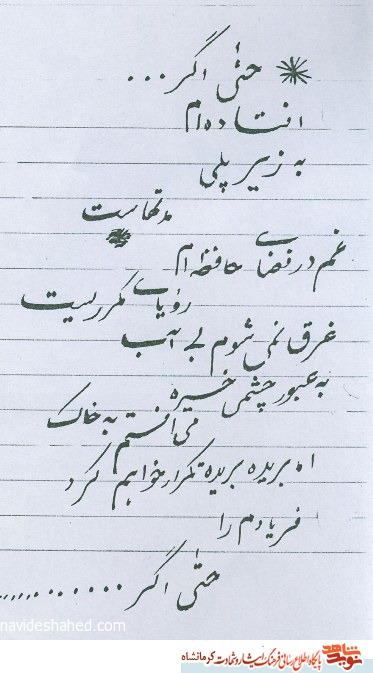 حتیٰ اگر ...
افتاده‌ام
به زیر پلی
مدتهاست
غم در فضای حافظه‌ام
رؤیای مکرریست
غرق نمی شوم بی آب
به عبور چشمی خیره
می افتم به خاک
اما بریده بریده تکرار خواهم کرد
فریادم را
حتیٰ اگر ............
navideshahed.com
نوید شاهد
پایگاه اطلاع رسانی فرهنگ ایثار و شهادت کرمانشاه